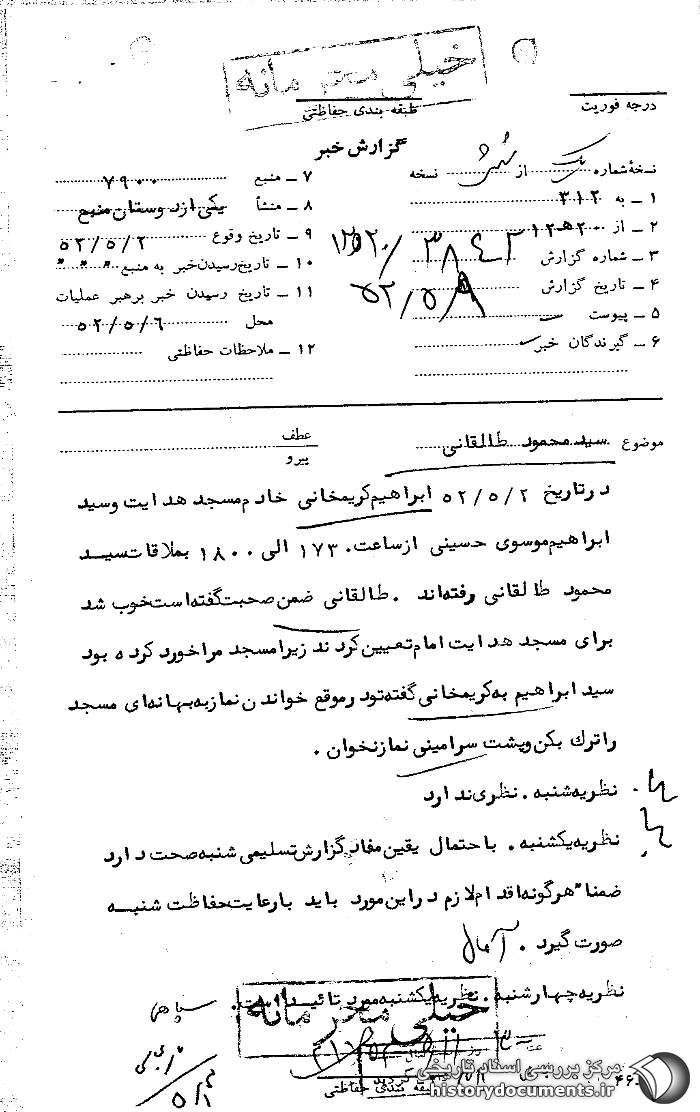 خیلی محرمانه
طبقه بندی حفاظتی
درجه فوریت
گزارش خبر
نسخه شماره یک از شش نسخه
۱ ـ به ۳۱۲
۲ ـ از ۲۰ ه ۱۲
۳ ـ شماره گزارش
۴ ـ تاریخ گزارش ۵۲/۵/۸
۵ ـ پیوست
۶ ـ گیرندگان خبر
۷ ـ منبع ۷۹۰۰
۸ ـ منشأ یکی از دوستان منبع
۹ ـ تاریخ وقوع ۵۲/۵/۲
۱۰ ـ تاریخ رسیدن خبر به منبع " " "
۱۱ ـ تاریخ رسیدن خبر برهبر عملیات
محل ۵۲/۵/۶
۱۲ ـ ملاحظات حفاظتی
موضوع سید محمود طالقانی
عطف
پیرو
در تاریخ ۵۲/۵/۲ ابراهیم کریمخانی خادم مسجد هدایت و سید
ابراهیم موسوی حسینی از ساعت ۱۷۳۰ الی ۱۸۰۰ بملاقات سید
محمود طالقانی رفته‌اند . طالقانی ضمن صحبت گفته است خوب شد
برای مسجد هدایت امام تعیین کردند زیرا مسجد مرا خورد کرده بود
سید ابراهیم به کریمخانی گفته تو در موقع خواندن نماز به بهانه‌ای مسجد
را ترك بکن و پشت سر امینی نماز نخوان .
نظریه شنبه . نظری ندارد
نظریه یکشنبه . با احتمال یقین مفاد گزارش تسلیمی شنبه صحت دارد
ضمنا" هرگونه اقدام لازم در این مورد باید با رعایت حفاظت شنبه
صورت گیرد . آمال
نظریه چهارشنبه . نظریه یکشنبه مورد تائید است .
خیلی محرمانه
طبقه بندی حفاظتی
مرکز بررسی اسناد تاریخی
historydocuments.ir